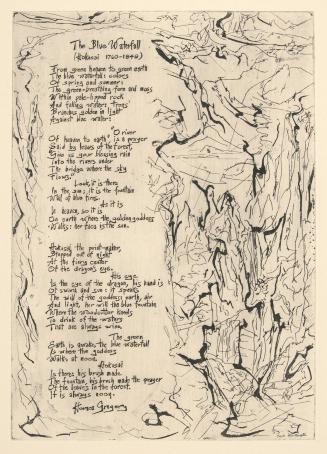 The Blue Waterfall
(Hokusai 1760-1849)
From green heaven to green earth
The blue waterfall: colors
Of spring and summer:
The green-breathing fern and moss
Within pale-lipped rock
And falling waters
Branches golden in light
Against blue water:
"O river
Of heaven to earth" is a prayer
Said by leaves of the forest,
"Give us your blessing rain
Into the rivers under
The bridge where the sky
Flows."
Look, it is there
In the sun; it is the fountain
Wall of blue fires,
As it is
In heaven, so it is
On earth where the golden goddess
Walks: her face is the sun.
Hokusai, the print-maker,
Stepped out of night
At the fiery center
Of the dragon's eye.
His eye
Is the eye of the dragon, his hand is
Of sword and sun: it speaks
The will of the goddess: earth, air
And light, her will the blue fountain
Where the woodcutter kneels
To drink of the waters
That are always wine.
The green
Earth is awake, the blue waterfall
Is where the goddess
Walks at noon.
Hokusai
Is there: his brush made
The fountain, his brush made the prayer
Of the leaves to the forest.
It is always noon.
Horace Gregory